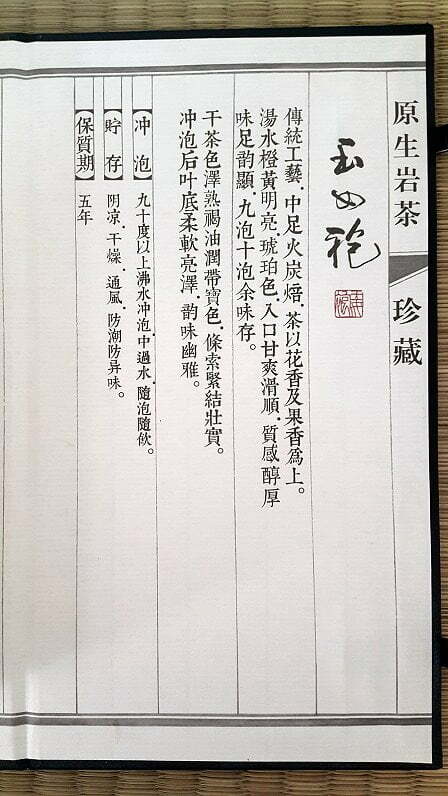 原生岩茶 珍藏
玉女袍
傳統工藝.中足火炭焙.茶以花香及果香爲上。
湯水橙黃明亮.琥珀色.入口甘爽滑順.質感醇厚
味足韵顯.九泡十泡余味存。
干茶色澤熟褐油潤帶寶色.條索緊結壯實。
冲泡后叶底柔軟亮澤.韵味幽雅。
【冲泡】九十度以上沸水冲泡.中過水.隨泡隨飲。
【貯存】阴凉.干燥.通風.防潮防异味。
【保質期】五年